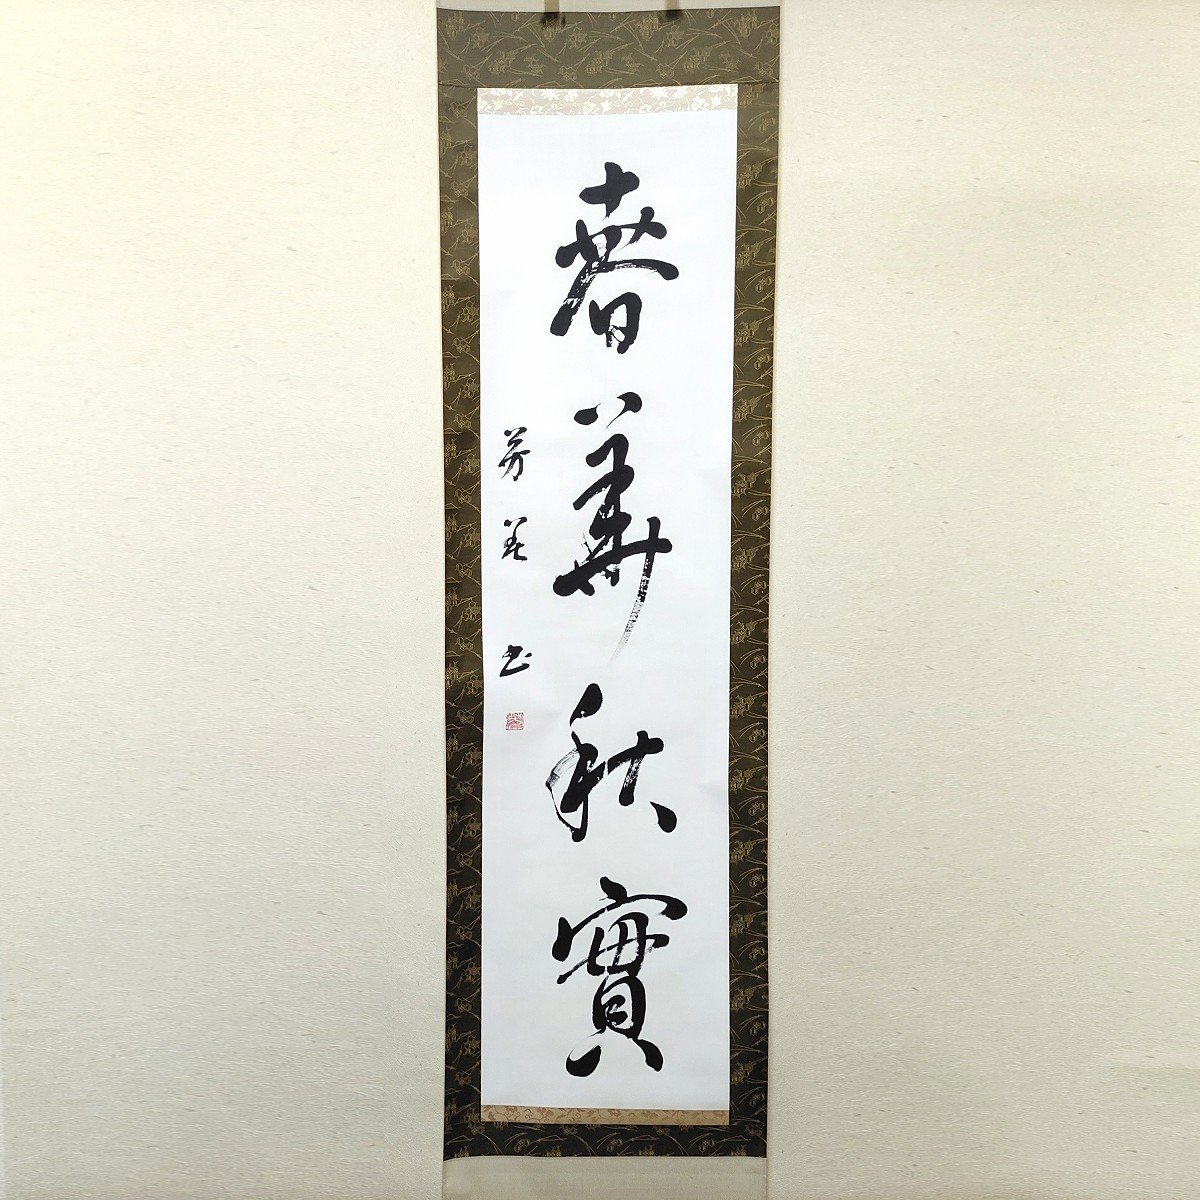 春華秋實
芳芝 書